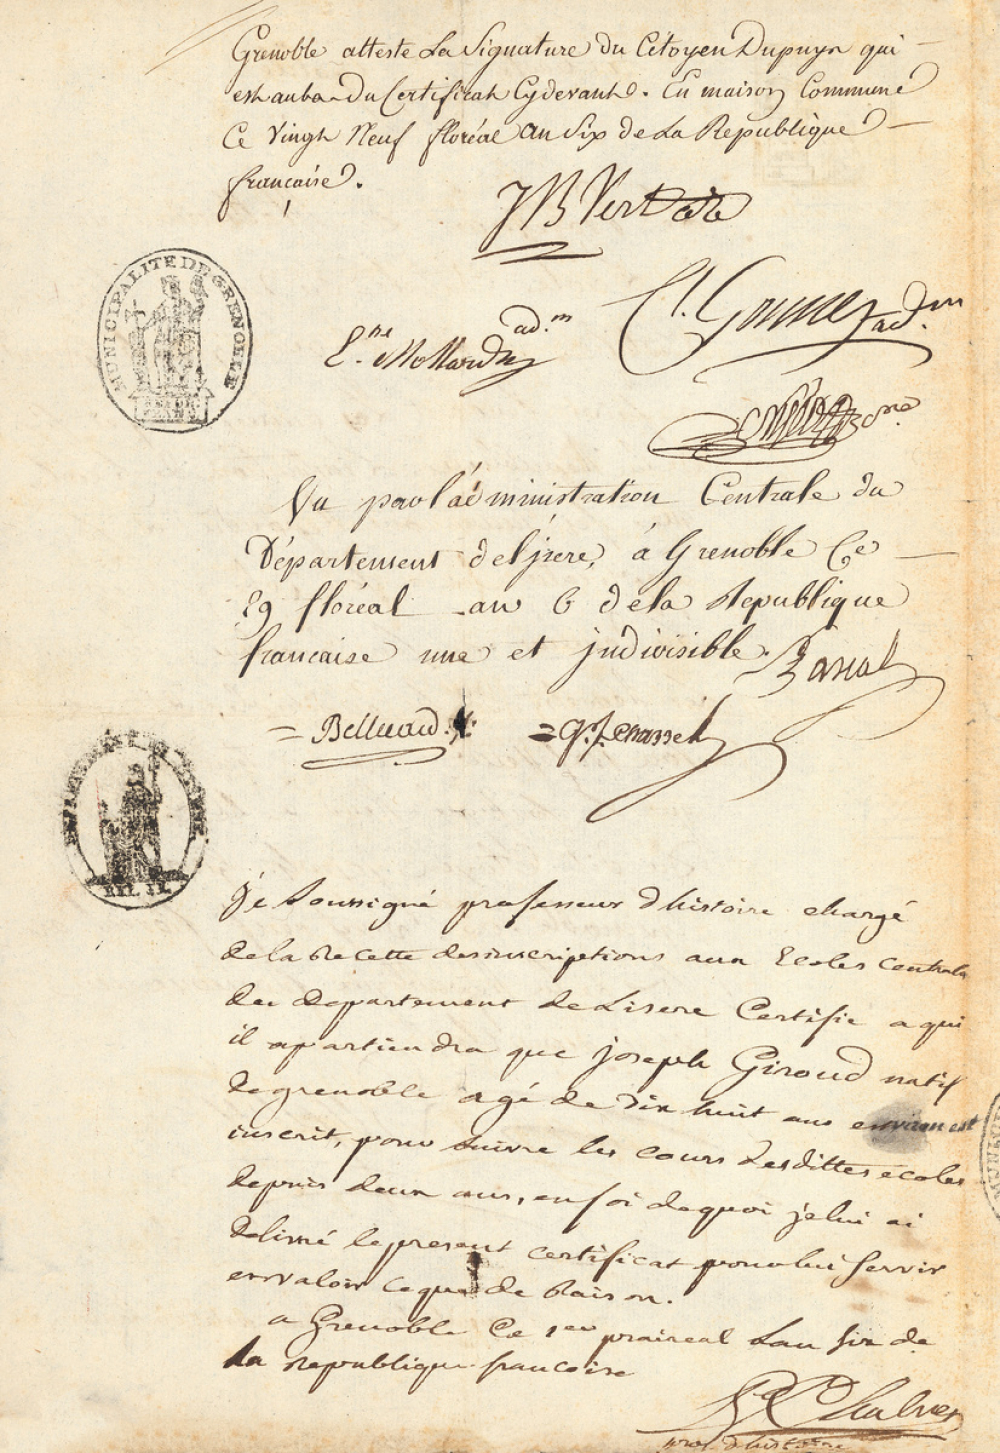 Grenoble atteste La Signature du Citoyen Dupuyn qui
est au bas du Certificat Cydevant. En maison Commune
Ce Vingt Neuf floréal an Six de La Republique
française.
JB Vert
MUNICIPALITÉ DE GRENOBLE
E.ne Mollard ad.m
Cl. Gomez ad.m
Vu par l'administration Centrale du
Département de l'jsere, à Grenoble Ce
29 floréal an 6 de la Republique
francaise une et jndivisible.
= Belluard
je soussigné professeur d'histoire chargé
de la Recette des inscriptions aux Ecoles centrales
du departement de Lisere Certifie a qui
il apartiendra que joseph Giroud natif
de grenoble agé de dix huit ans environ est
inscrit, pour suivre les cours desdittes écoles
depuis deux ans, en foi de quoi je lui ai
delivré le present certificat pour lui servir
en valoir ce que de Raison.
a Grenoble Ce 1er praireal Lan six de
la republique francoise
prof d'histoire